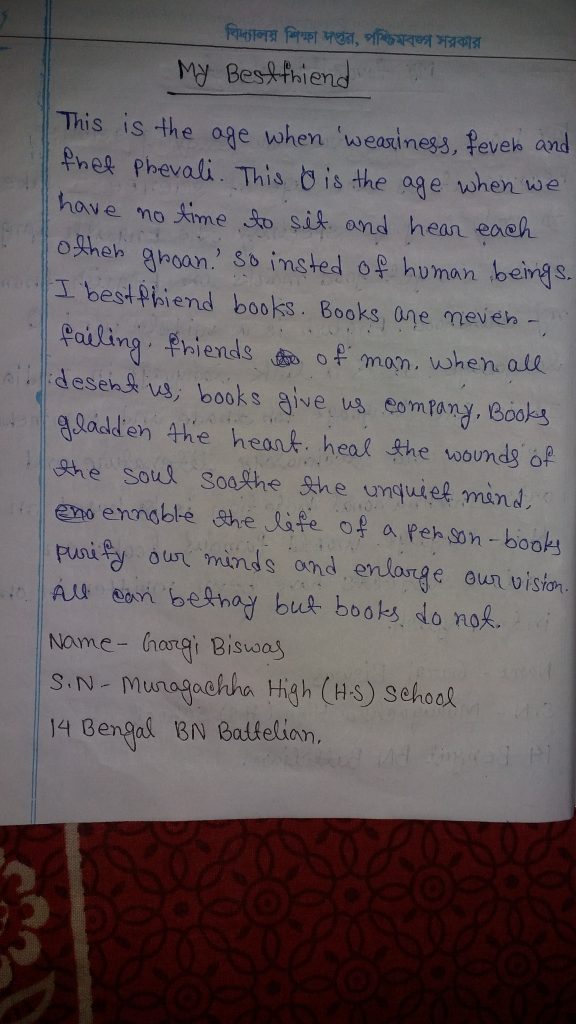 বিদ্যালয় শিক্ষা দপ্তর, পশ্চিমবঙ্গ সরকার
My Bestfriend
This is the age when 'weariness, fever and
fret prevali. This is the age when we
have no time to sit and hear each
other groan.' so insted of human beings.
I bestfriend books. Books, are never -
failing. friends of man. when all
desert us, books give us company. Books
gladden the heart. heal the wounds of
the soul soothe the unquiet mind,
ennoble the life of a person - books
purify our minds and enlarge our vision.
All can betray but books do not.
Name - Gargi Biswas
S.N - Muragachha High (H.S) School
14 Bengal BN Battelian.